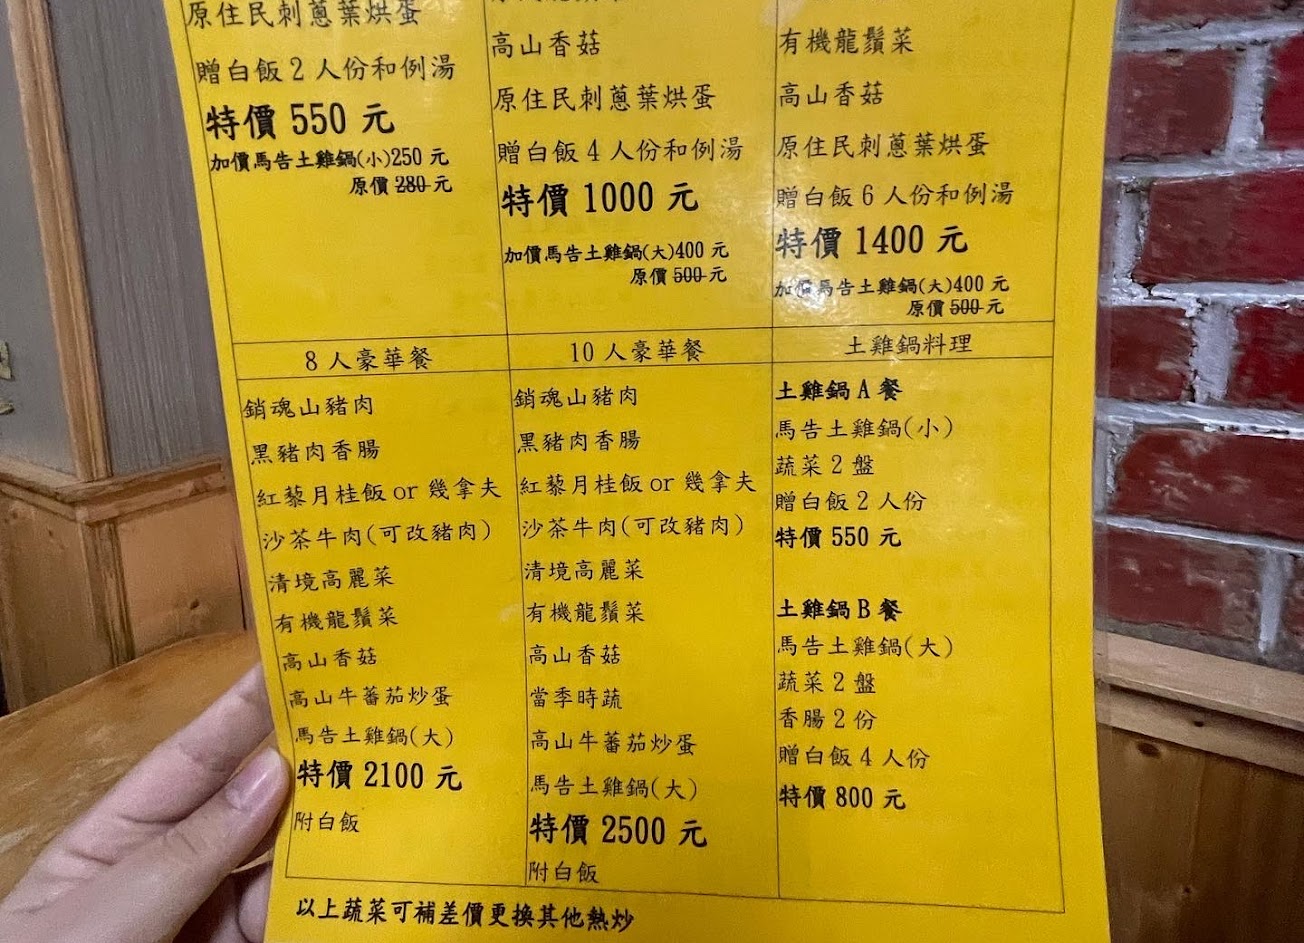 原住民刺蔥葉烘蛋
贈白飯2人份和例湯
特價 550 元
加價馬告土雞鍋(小)250 元
原價 280 元
高山香菇
原住民刺蔥葉烘蛋
贈白飯4人份和例湯
特價 1000 元
加價馬告土雞鍋(大)400 元
原價 500 元
有機龍鬚菜
高山香菇
原住民刺蔥葉烘蛋
贈白飯6人份和例湯
特價 1400 元
加價馬告土雞鍋(大)400 元
原價 500 元
8人豪華餐
銷魂山豬肉
黑豬肉香腸
紅藜月桂飯 or 幾拿夫
沙茶牛肉(可改豬肉)
清境高麗菜
有機龍鬚菜
高山香菇
高山牛蕃茄炒蛋
馬告土雞鍋(大)
特價 2100 元
附白飯
10人豪華餐
銷魂山豬肉
黑豬肉香腸
紅藜月桂飯 or 幾拿夫
沙茶牛肉(可改豬肉)
清境高麗菜
有機龍鬚菜
高山香菇
當季時蔬
高山牛蕃茄炒蛋
馬告土雞鍋(大)
特價 2500 元
附白飯
土雞鍋料理
土雞鍋A餐
馬告土雞鍋(小)
蔬菜2盤
贈白飯2人份
特價 550 元
土雞鍋B餐
馬告土雞鍋(大)
蔬菜2盤
香腸2份
贈白飯4人份
特價 800 元
以上蔬菜可補差價更換其他熱炒